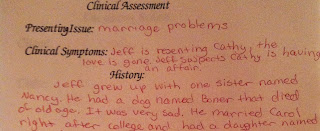 Clinical Assessment
Presenting Issue: marriage problems
Clinical Symptoms: Jeff is repeating Cathy, the
love is gone. Jeff suspects Cathy is having
an affair.
History:
Jeff grew up with one sister named
Nancy. He had a dog named Boner that died
of old age. It was very sad. He married Carol
right after college and had a daughter named